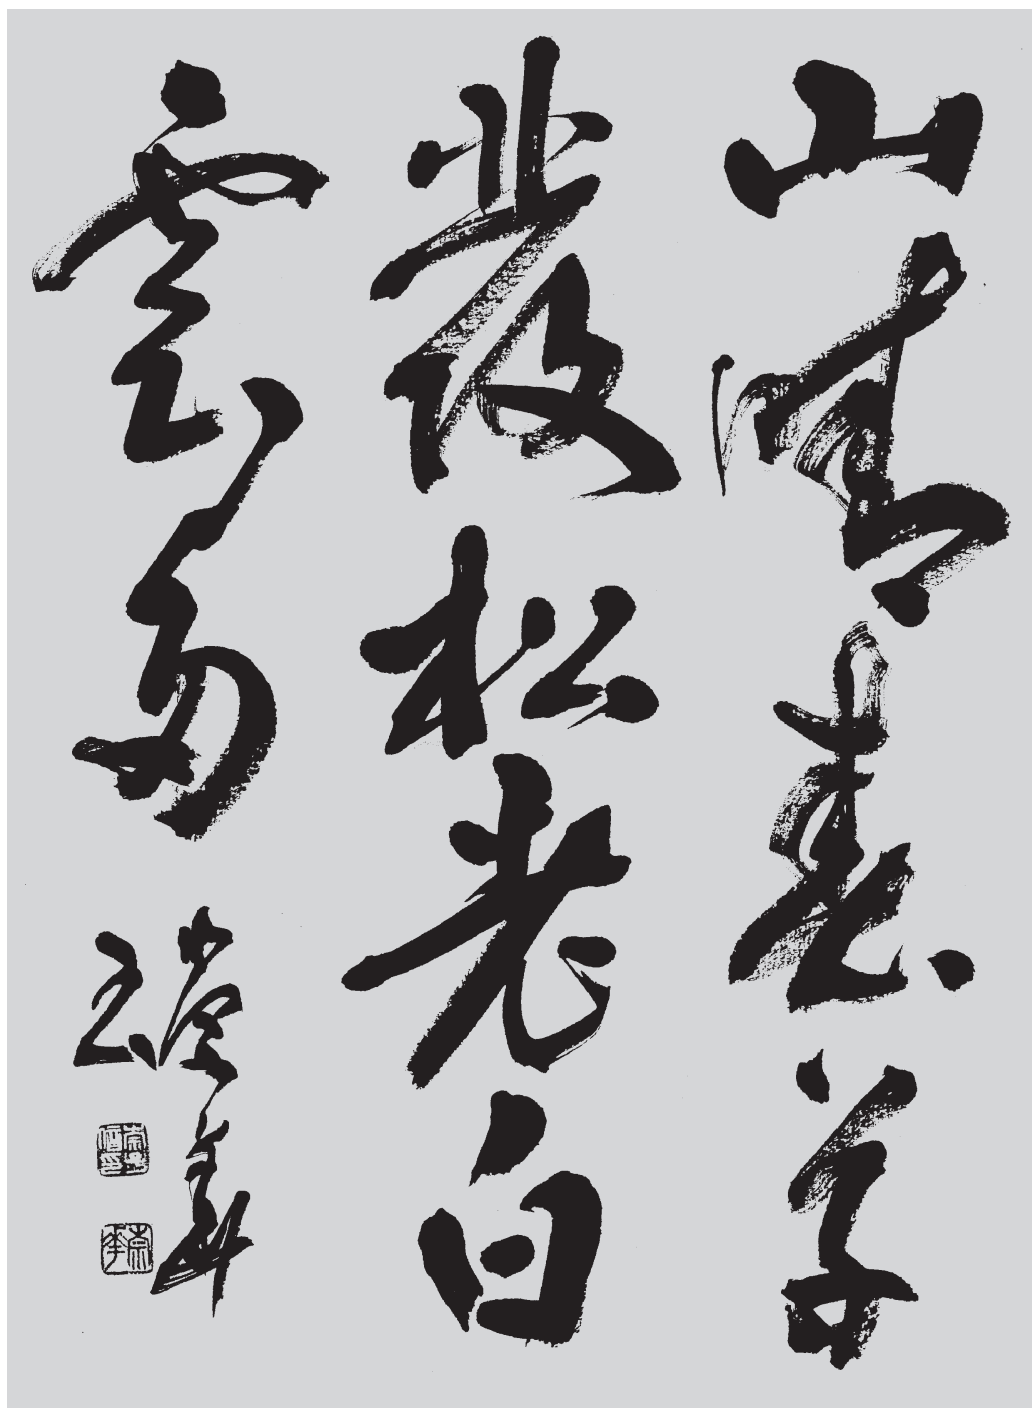 山晴春草
發松老白
雲多